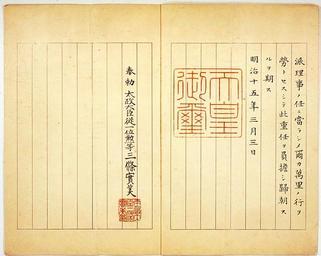 派理事ノ任ニ當ラシメ爾カ萬里ノ行ヲ
勞トセスシテ此重任ヲ負擔シ歸朝ス
ルヲ期ス
明治十五年三月三日
天皇
御璽
奉勅 太政大臣從一位勲一等三條實美